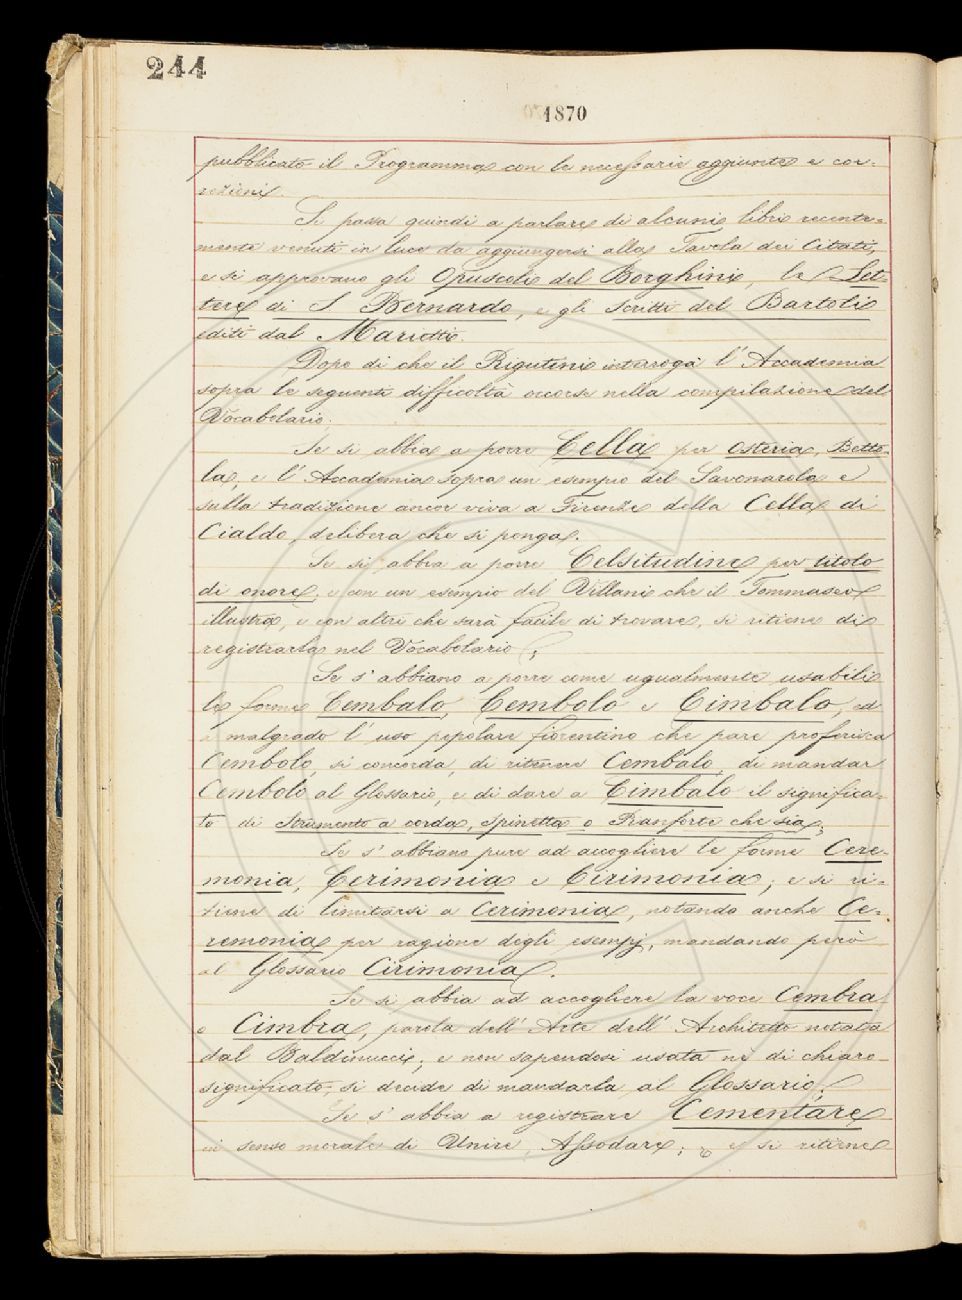 244
1870
pubblicato il Programma con le necessarie aggiunte e cor-
rezioni.
Si passa quindi a parlare di alcuni libri recente-
mente venuti in luce da aggiungersi alla Tavola dei Citati,
e si approvano gli Opuscoli del Borghini, le Let-
tere di S Bernardo, e gli Scritti del Bartoli
editi dal Mariotti.
Dopo di che il Rigutini interroga l'Accademia
sopra le seguenti difficoltà occorse nella compilazione del
Vocabolario.
Se si abbia a porre Cella per Osteria, Betto-
la, e l'Accademia sopra un esempio del Savonarola e
sulla tradizione ancor viva a Firenze della Cella di
Cialdo, delibera che si ponga.
Se si abbia a porre Celsitudine per titolo
di onore, e con un esempio del Villani che il Tommaseo
illustra, e con altri che sarà facile di trovare, si ritiene di
registrarla nel Vocabolario;
Se s'abbiano a porre come ugualmente usabili
le forme Cembalo, Cembolo e Cimbalo, ed
a malgrado l'uso popolare fiorentino che pare proferisca
Cembolo, si concorda, di ritenere Cembalo, di mandar
Cembolo al Glossario, e di dare a Cimbalo il significa-
to di Strumento a corda, Spinetta o Pianforte che sia;
Se s'abbiano pure ad accogliere le forme Cere-
monia, Cerimonia e Cirimonia; e si ri-
tiene di limitarsi a Cerimonia, notando anche Ce-
remonia per ragione degli esempj, mandando però
al Glossario Cirimonia.
Se si abbia ad accogliere la voce Cembra
o Cimbra, parola dell'Arte dell'Architetto notata
dal Baldinucci; e non sapendosi usata nè di chiaro
significato, si decide di mandarla al Glossario;
Se s'abbia a registrare Cementare
in senso morale di Unire, Assodare; e si ritiene